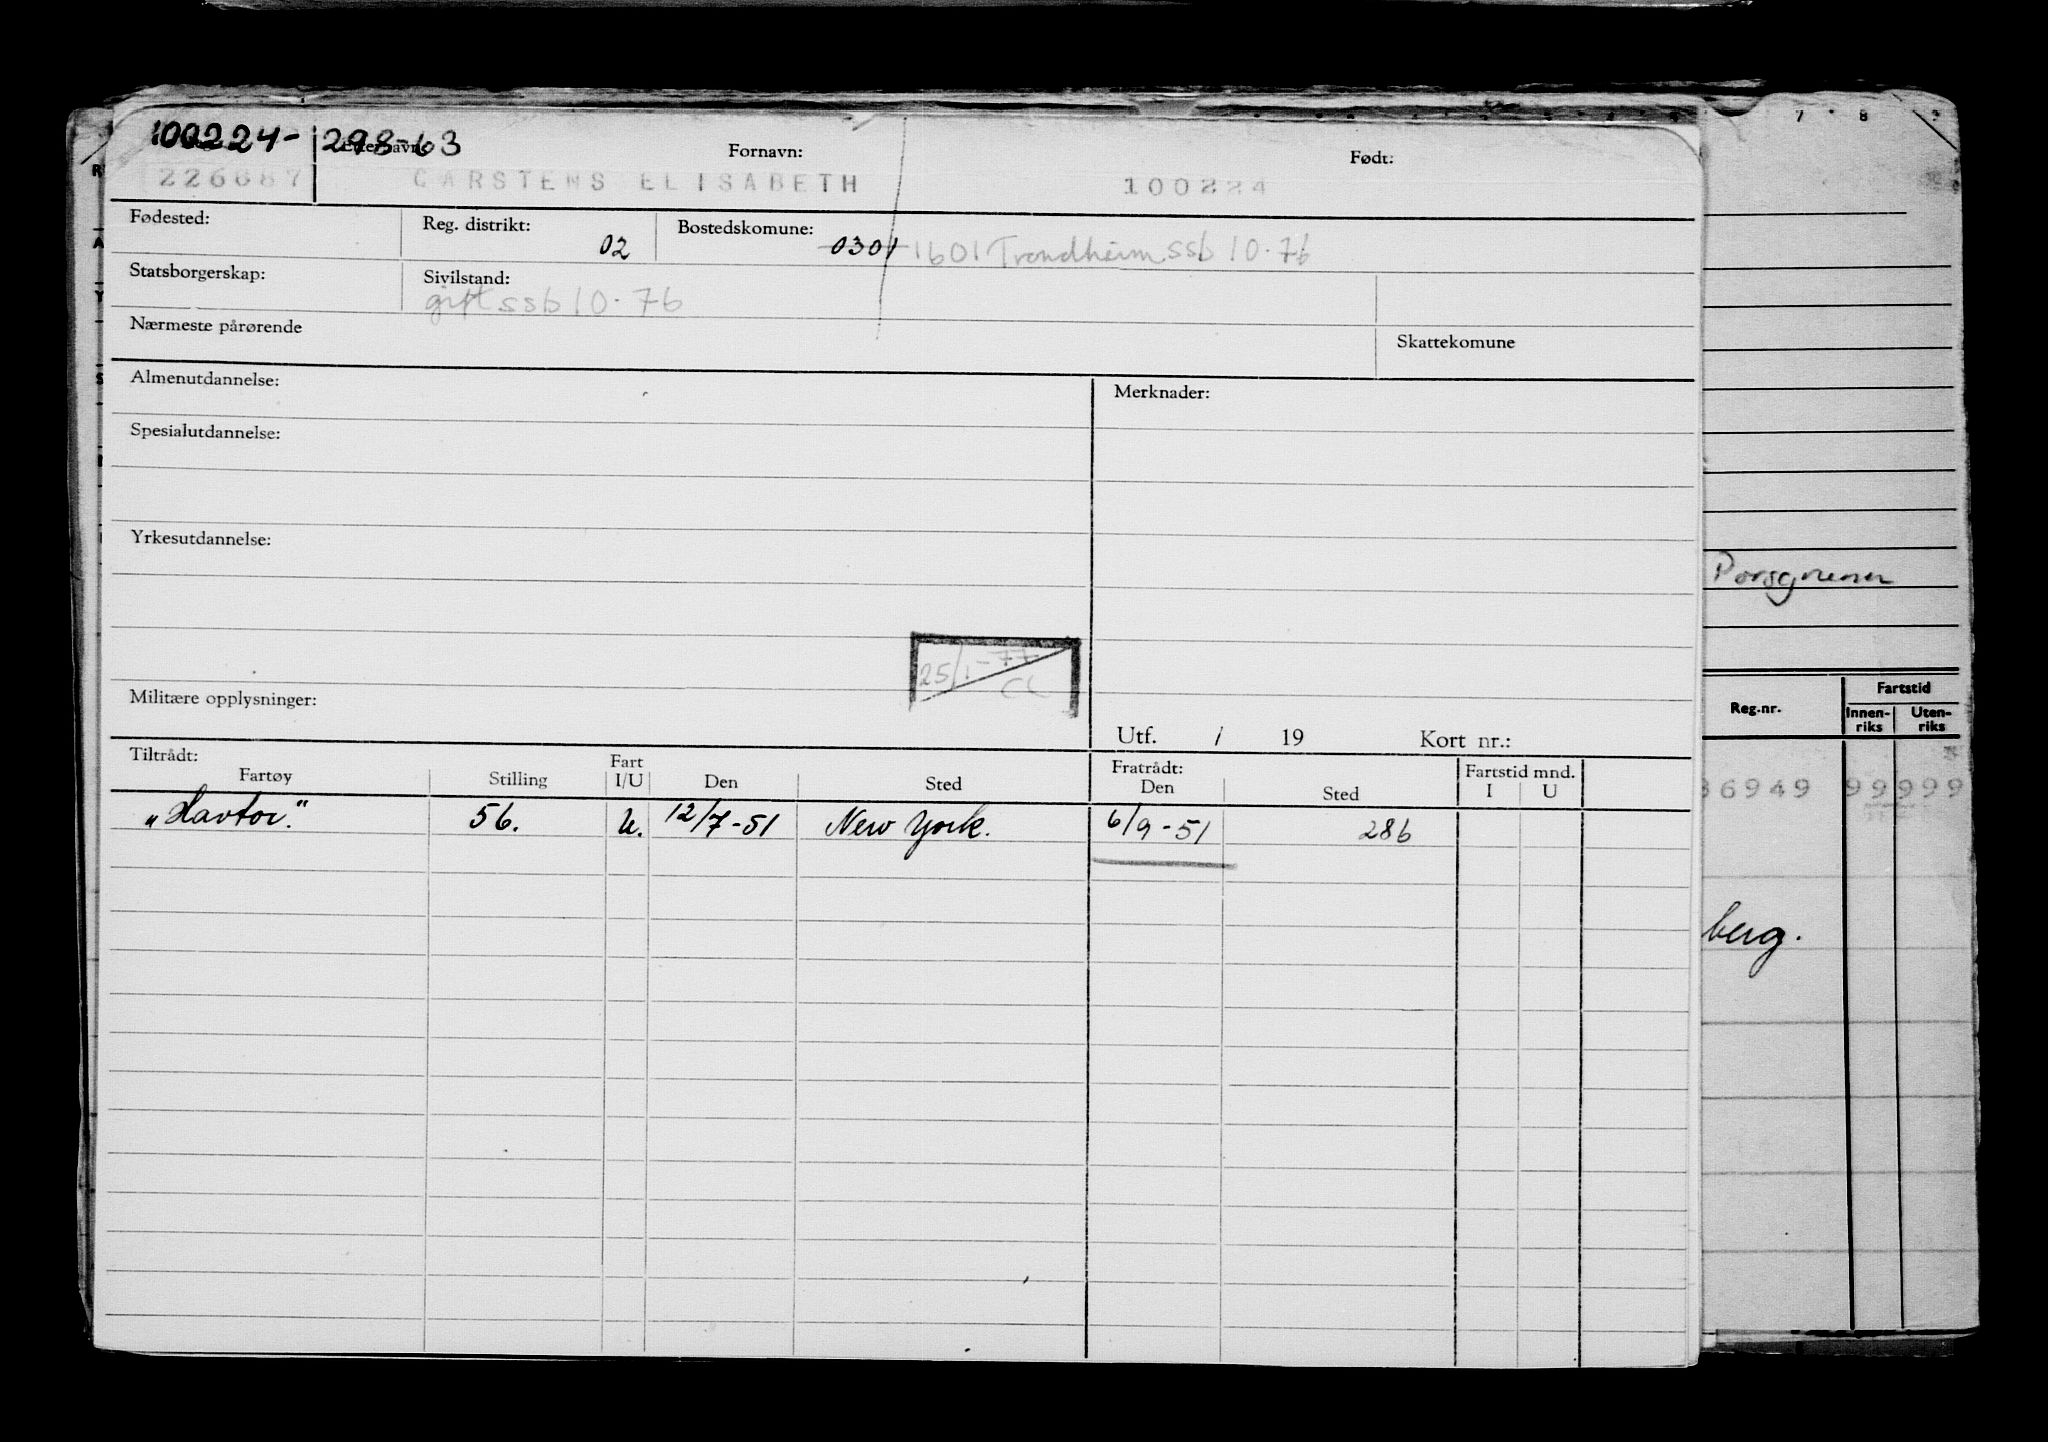 100224- 298-63
Etternavn: Fornavn: Født:
226687 CARSTENS ELISABETH 100224
Fødested: Reg. distrikt: 02 Bostedskomune: 0301 1601 Trondheim ssb 10.76
Statsborgerskap: Sivilstand:
gift ssb 10.76
Nærmeste pårørende Skattekomune
Almenutdannelse: Merknader:
Spesialutdannelse:
Yrkesutdannelse:
25/1-77
CL
Militære opplysninger:
Utf. / 19 Kort nr.:
Tiltrådt: Fart Fratrådt: Fartstid mnd.
Fartøy Stilling I/U Den Sted Den Sted I U
„Havtor." 56. U. 12/7-51 New York. 6/9-51 286
7 8 9
Porsgrunn
Reg.nr. Fartstid
Innen-riks Uten-riks
36949 99999
berg.